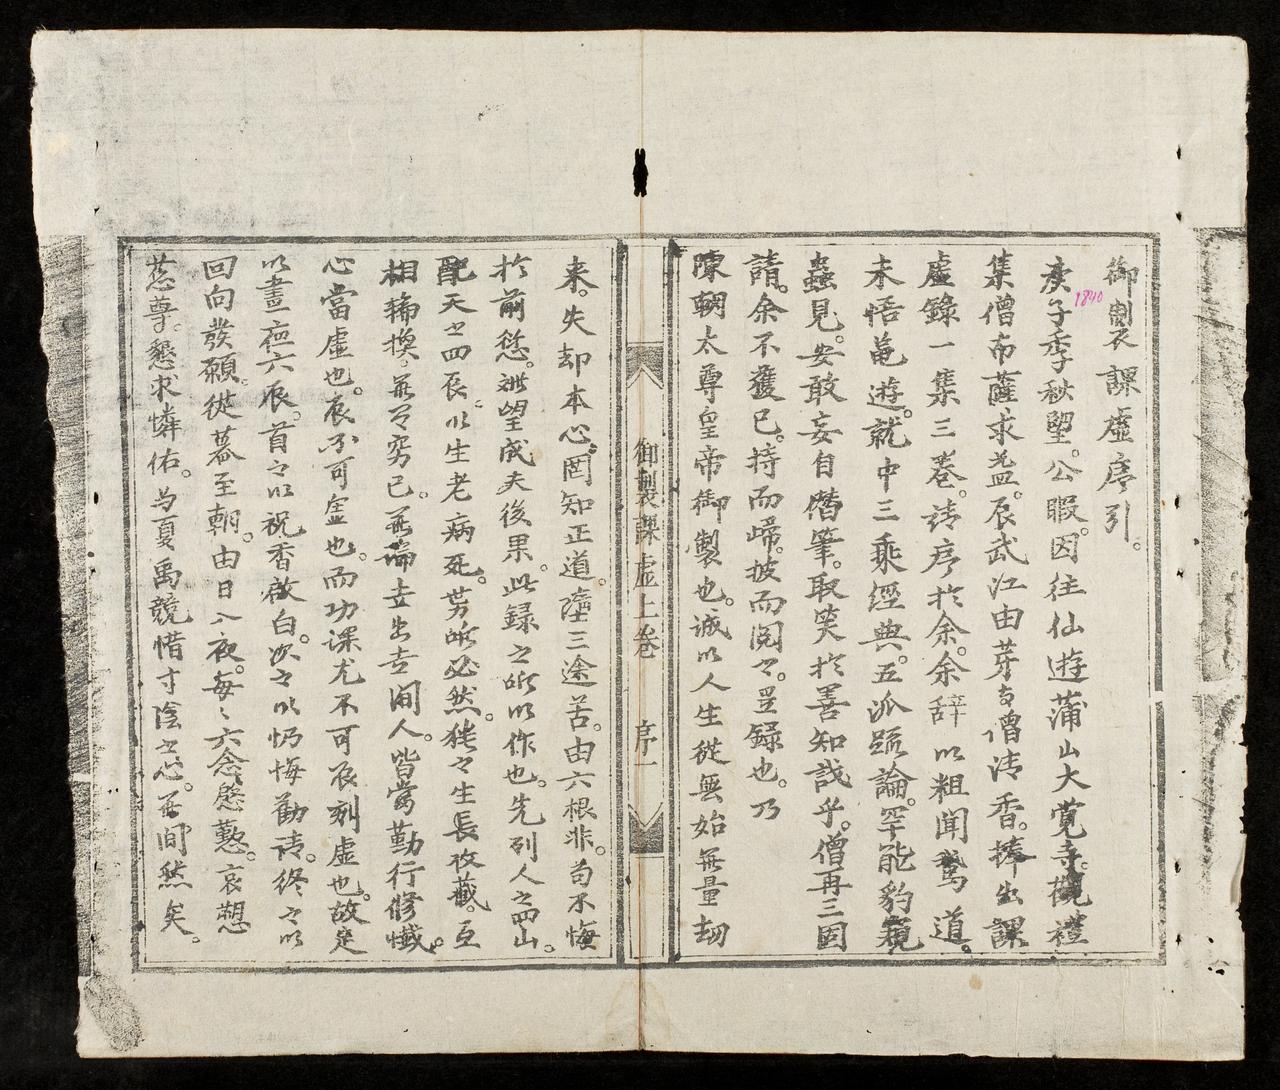 御製課虛序引。
1840
庚子季秋望。公暇。因往仙遊蒲山大覽寺。觀禮
集僧布薩求益。辰武江由芽寺僧清香。捧出課
虛錄一集三卷。請序於余。余辞以粗聞驚道。
未悟黽遊。就中三乘經典。五派䟽論。罕能豹窺
蠡見。安敢妄自僭筆。取笑於善知識乎。僧再三固
請。余不獲已。持而歸。披而閱之。是録也。乃
陳朝太尊皇帝御製也。誠以人生從無始無量刼
御製課虛上卷 序一
来。失却本心。罔知正道。墮三途苦。由六根非。苟不悔
於前愆。逬望成夫後果。此録之所以作也。先列人之四山。
配天之四辰。以生老病死。势所必然。猶之生長收藏。互
相輪換。無有窮已。無論在出在閒人。皆當勤行修懺。
心當虛也。辰不可虛也。而功課尤不可辰刻虛也。故定
以晝夜六辰。首之以祝香啟白。次之以忏悔勸請。終之以
回向發願。從暮至朝。由日入夜。每々六念慇懃。哀愬
慈尊。懇求憐佑。与夏禹競惜寸陰之心。無間然矣。